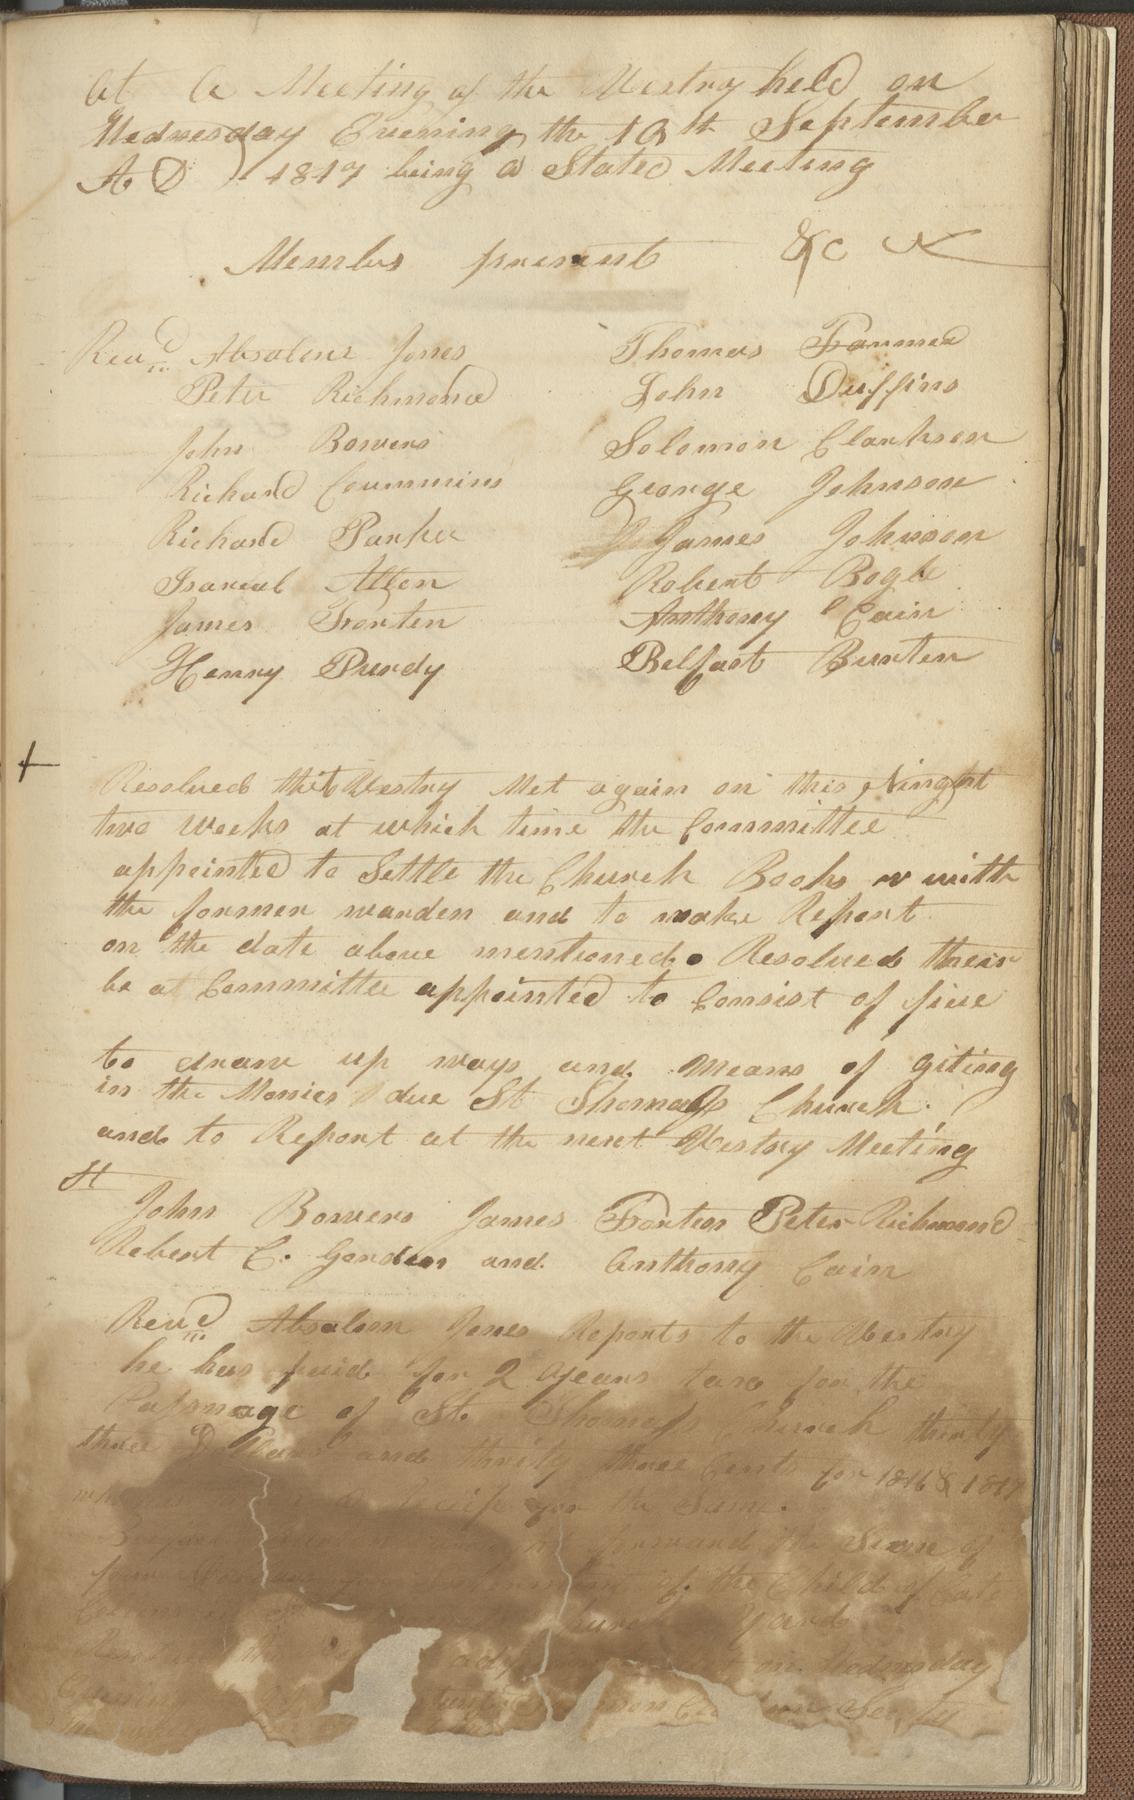 At A Meeting of the Vestry held on
Wednesday Evening the 10th September
A D 1817 being a Stated Meeting
Members present &c
Revd Absalom Jones
Peter Richmond
John Bowers
Richard Cummins
Richard Parker
Israel Allen
James Fronten
Henry Purdy
Thomas
John Duffins
Solomon Clarkson
George Johnson
James Johnson
Robert Bogle
Anthony Cain
Belfast Burten
Resolved that Vestry Met again on this Ninght
two weeks at which time the Committee
appointed to Settle the Church Books with
the former warden and to make Report
on the date above mentioned. Resolved their
be a Committee appointed to Consist of five
to draw up ways and means of giting
in the Monies due St Thomas Church.
and to Report at the next Vestry Meeting
John Bowers James Fronten Peter Richmond
Robert C. Gorden and Anthony Cain
Revd Absalom Jones Reports to the Vestry
he has paid for 2 years tax for the
Parsnage of St. Thomas Church thirty
three Dollars and thirty three Cents for 1816 & 1817
for the Same.
forward the Sum of
of the Child of
Church Yard
on Wednesday